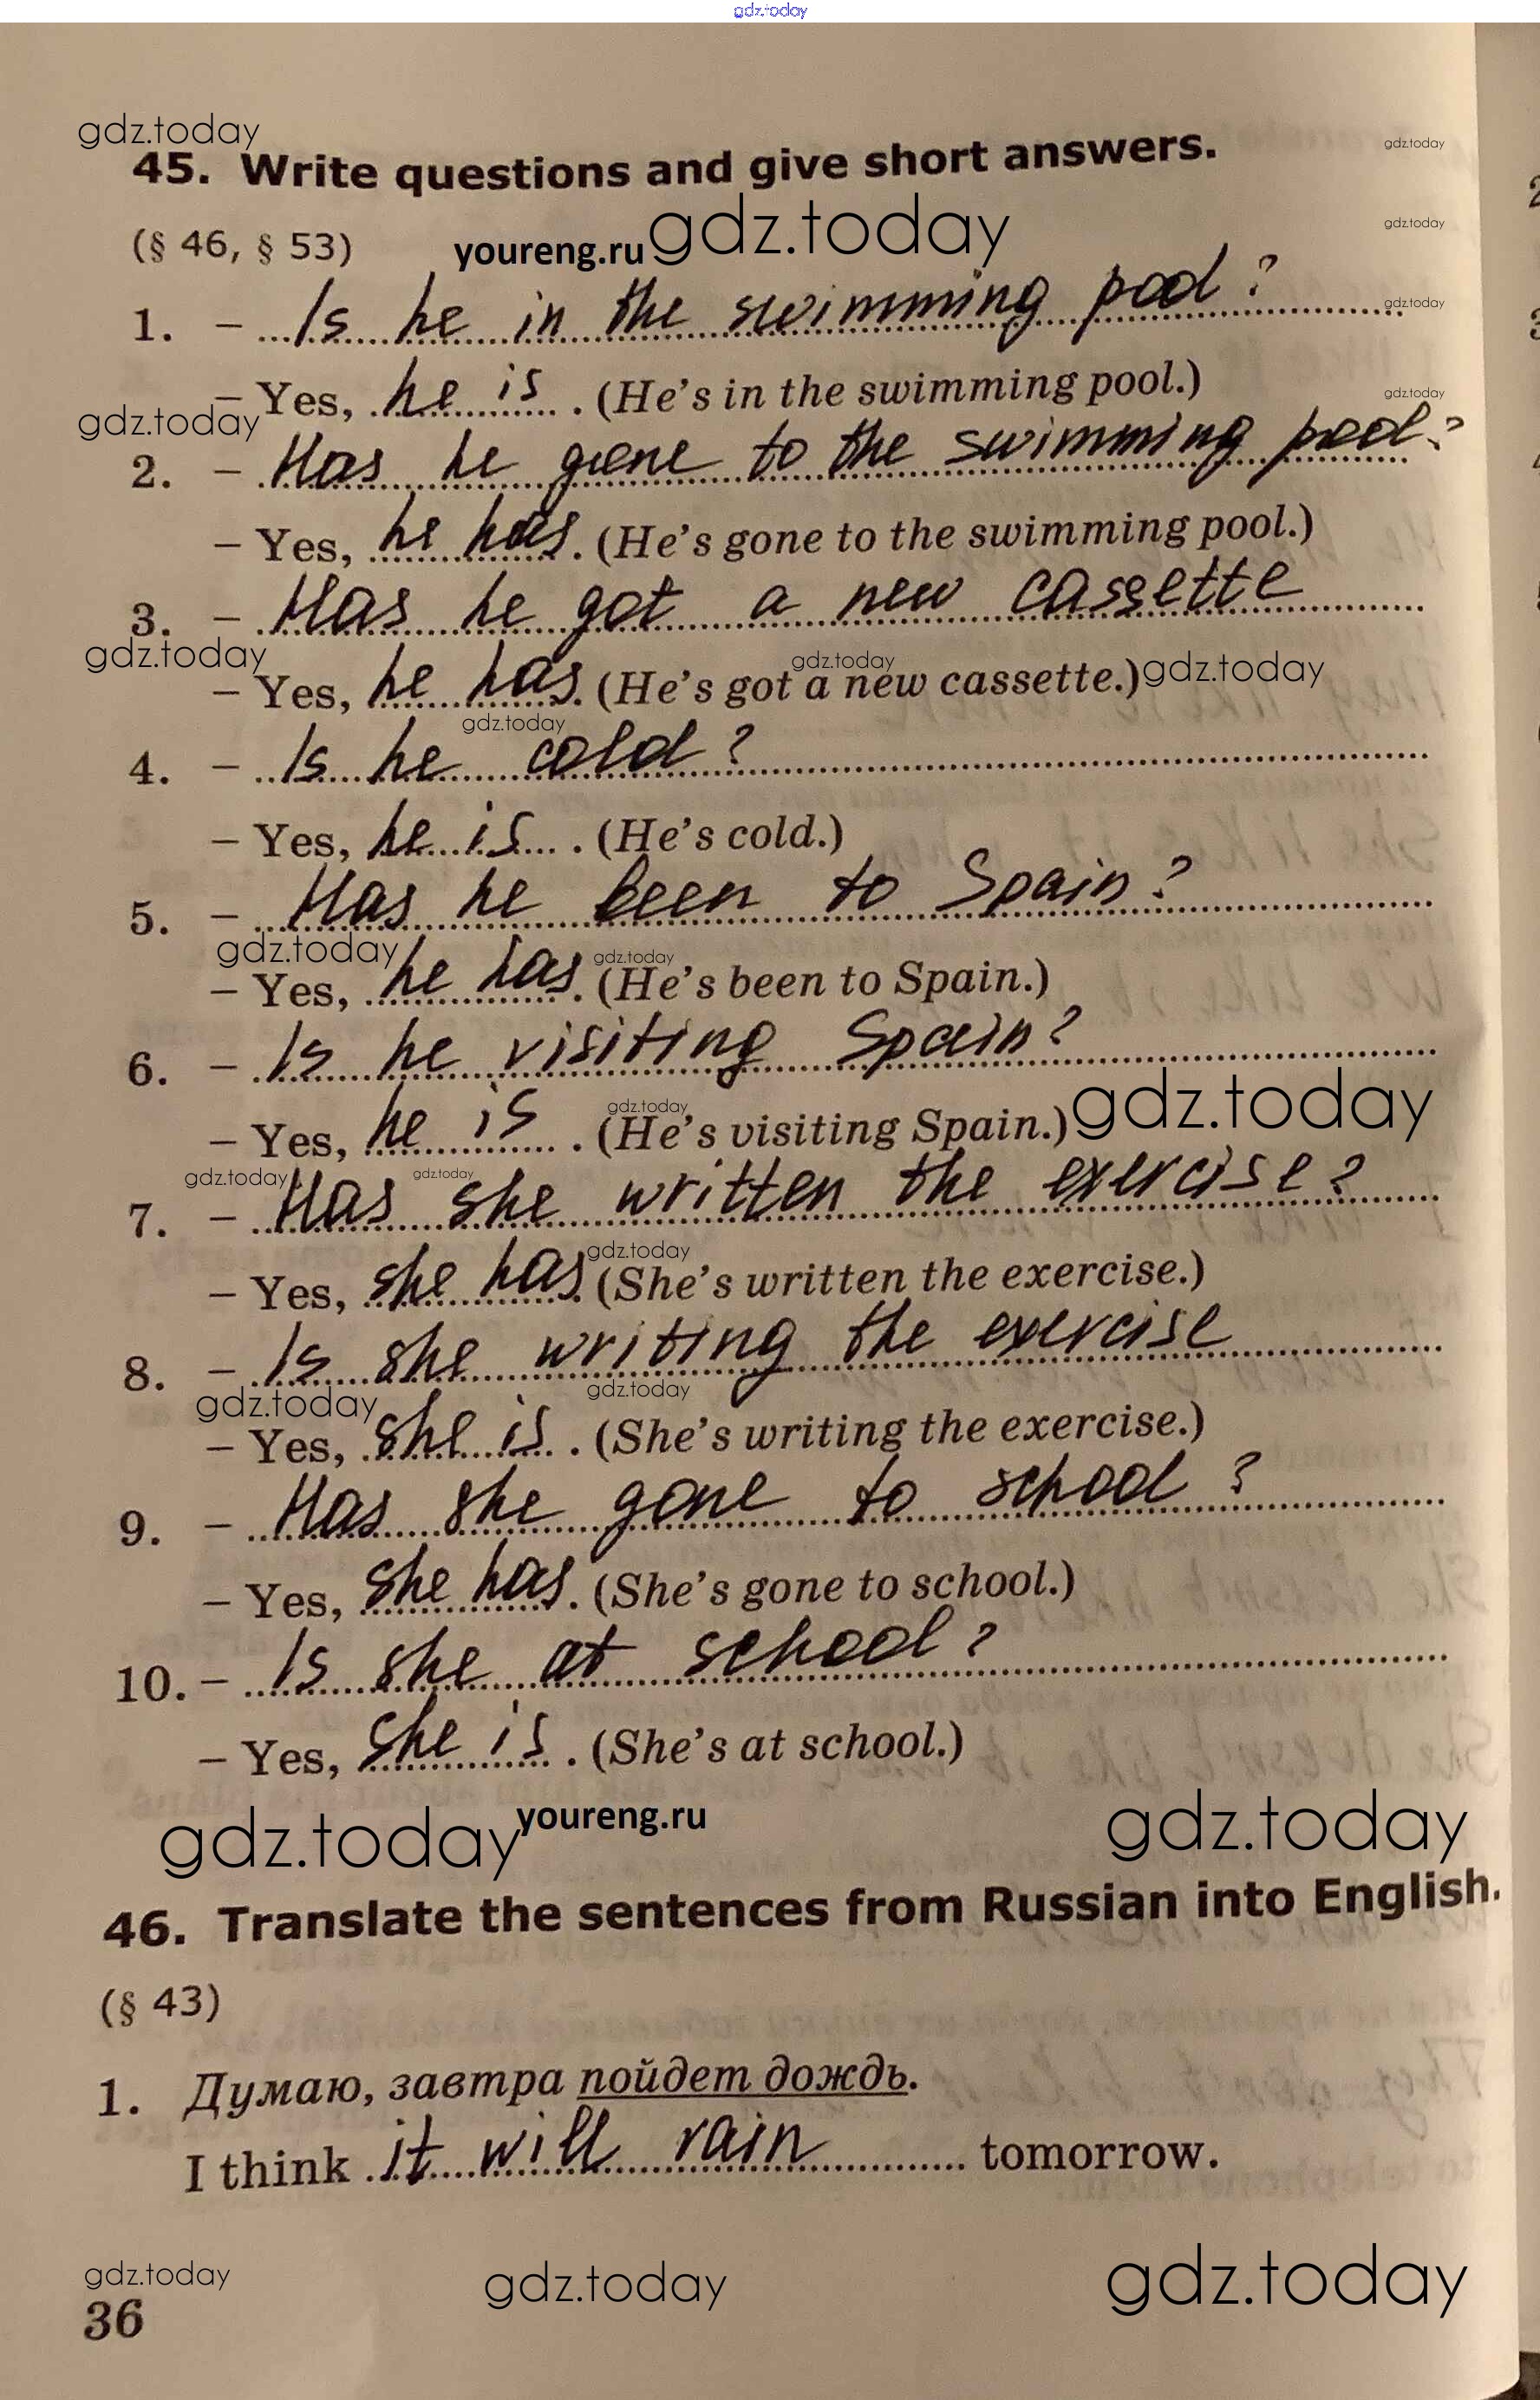 gdz.today
gdz.today
45. Write questions and give short answers.
gdz.today
(§ 46, § 53) youreng.ru gdz.today
gdz.today
1. – Is he in the swimming pool?
gdz.today
– Yes, he is. (He's in the swimming pool.)
gdz.today
gdz.today
2. – Has he gone to the swimming pool?
– Yes, he has. (He's gone to the swimming pool.)
3. – Has he got a new cassette
gdz.today
– Yes, he has. (He's got a new cassette.)
gdz.today
gdz.today
gdz.today
4. – Is he cold?
– Yes, he is. (He's cold.)
5. – Has he been to Spain?
gdz.today
gdz.today
– Yes, he has. (He's been to Spain.)
6. – Is he visiting Spain?
gdz.today
– Yes, he is. (He's visiting Spain.)
gdz.today
gdz.today
gdz.today
7. – Has she written the exercise?
gdz.today
– Yes, she has. (She's written the exercise.)
8. – Is she writing the exercise
gdz.today
gdz.today
– Yes, she is. (She's writing the exercise.)
9. – Has she gone to school?
– Yes, she has. (She's gone to school.)
10. – Is she at school?
– Yes, she is. (She's at school.)
gdz.today youreng.ru gdz.today
46. Translate the sentences from Russian into English.
(§ 43)
1. Думаю, завтра пойдет дождь.
I think it will rain tomorrow.
gdz.today gdz.today gdz.today
36